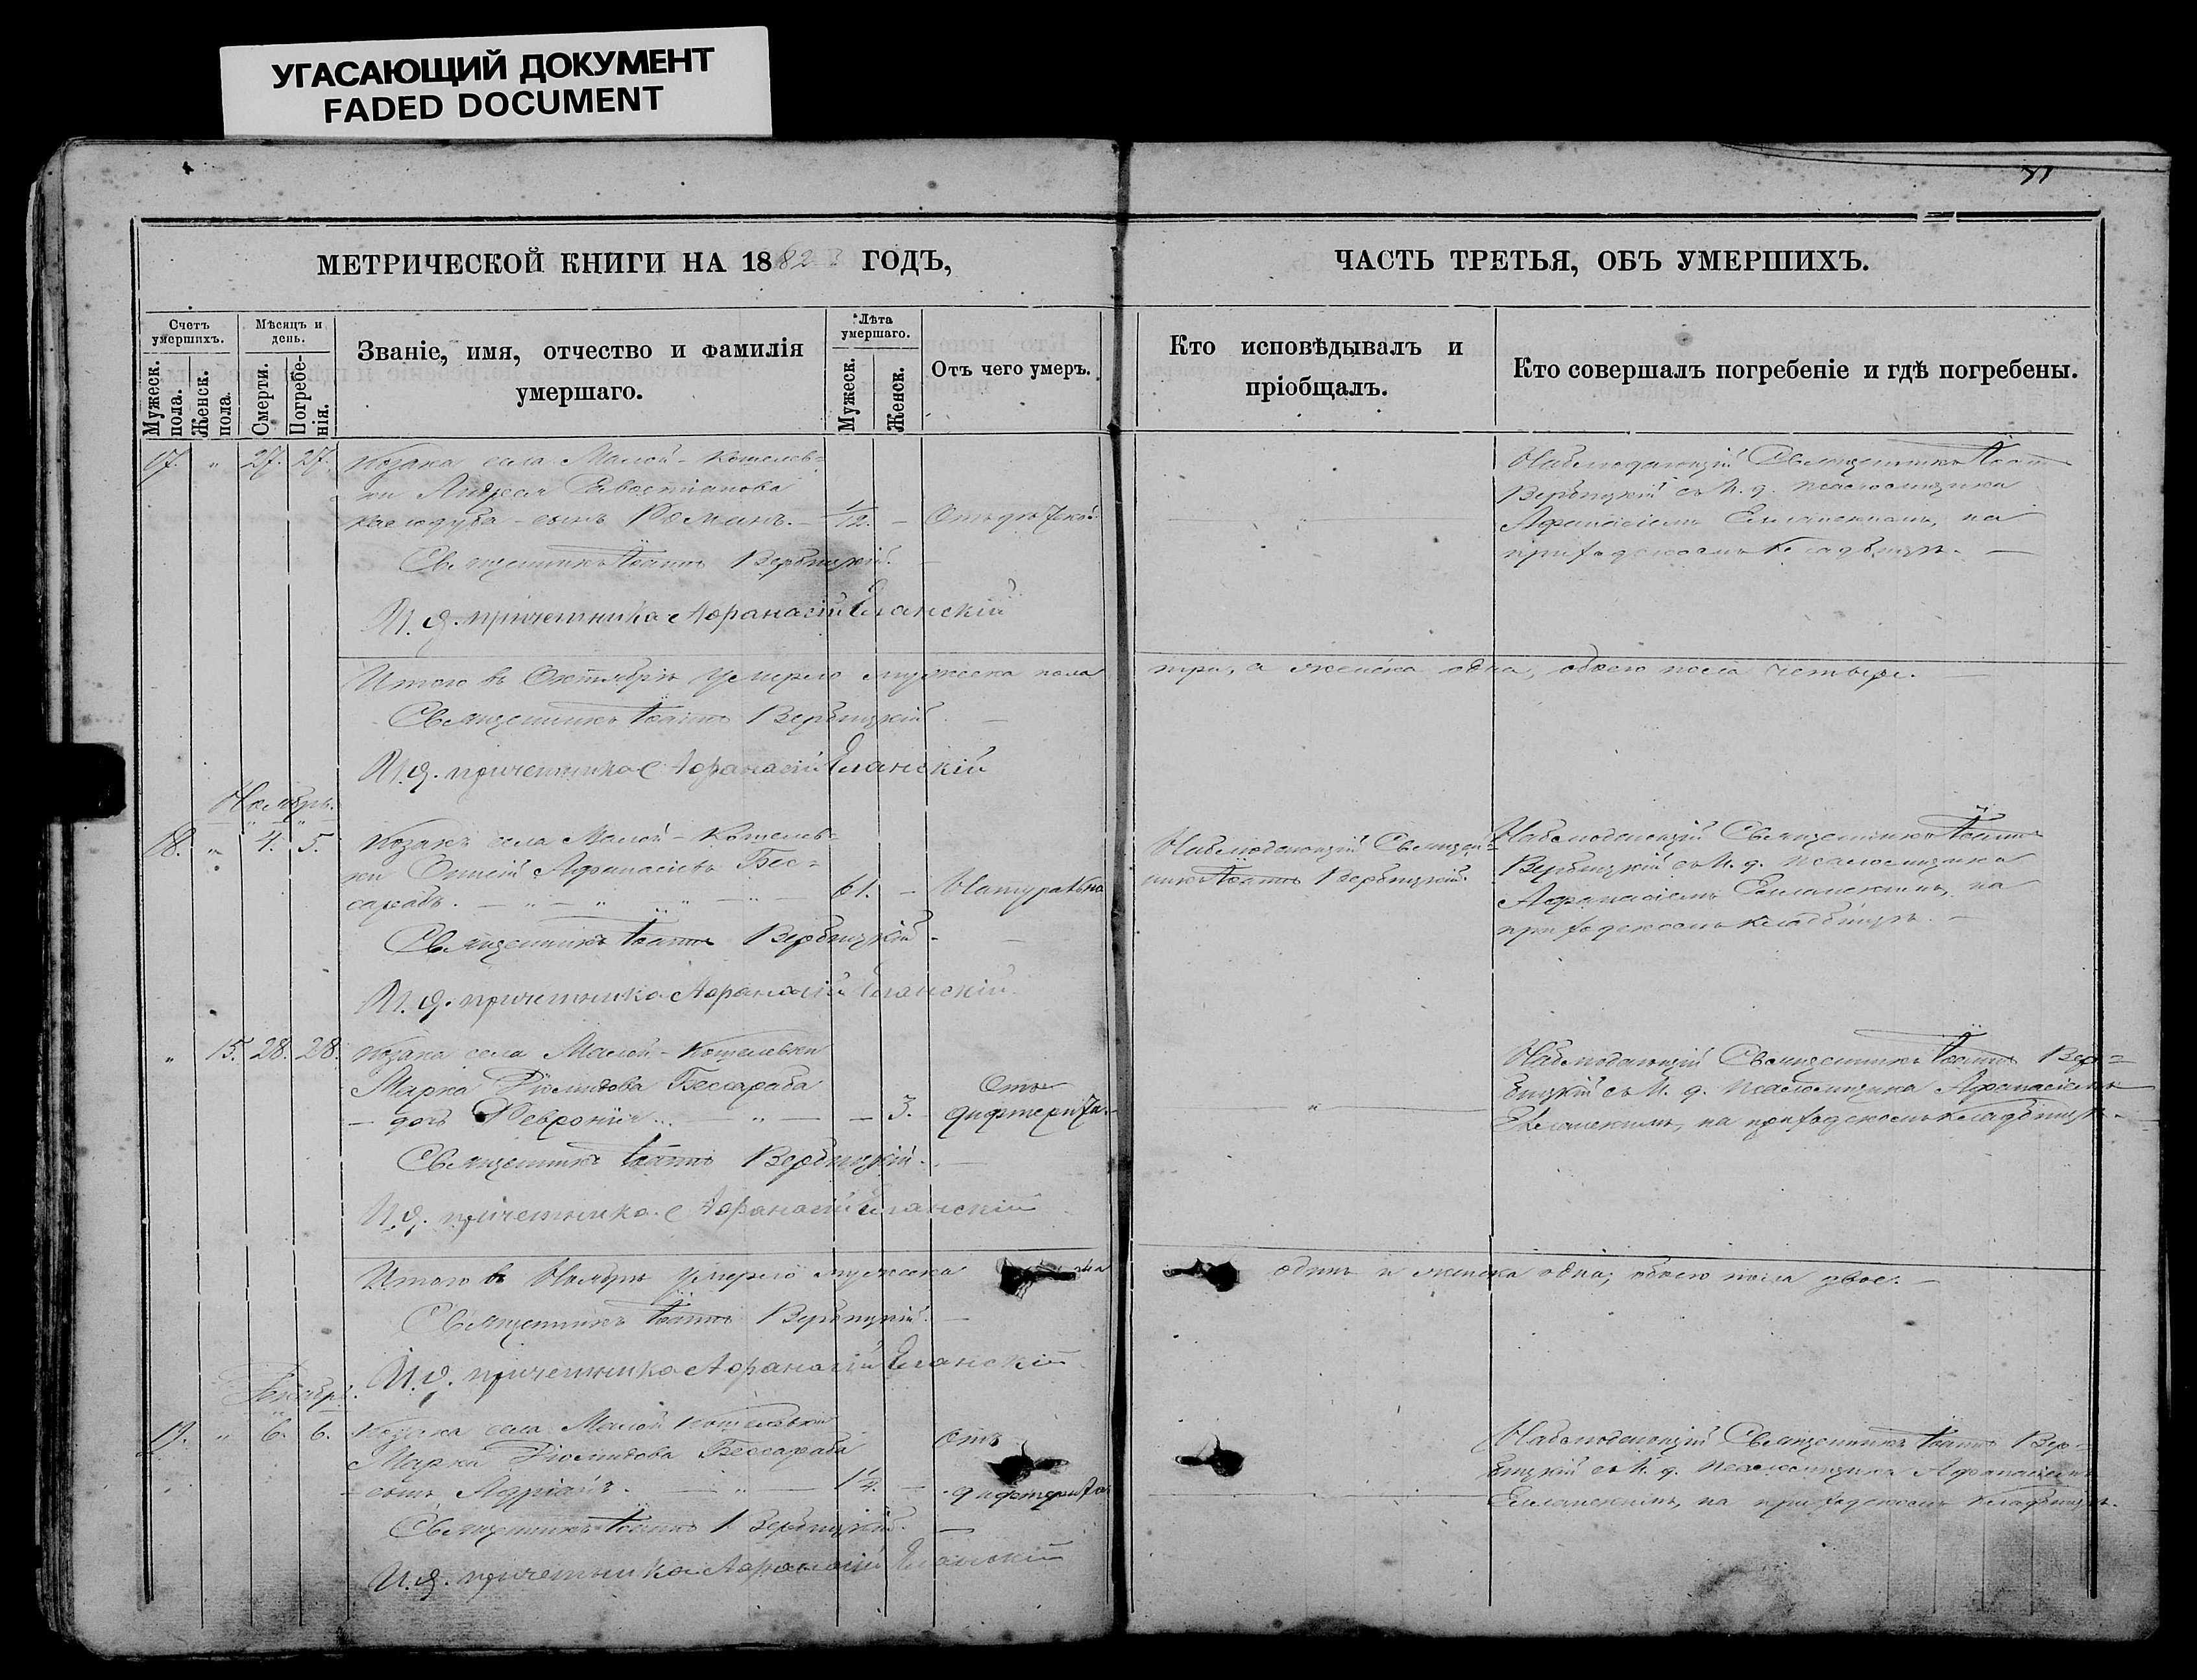 УГАСАЮЩИЙ ДОКУМЕНТ
FADED DOCUMENT
МЕТРИЧЕСКОЙ КНИГИ НА 1882 ГОДЪ,
ЧАСТЬ ТРЕТЬЯ, ОБЪ УМЕРШИХЪ.
Счетъ умершихъ.
Мужеск. пола.
Женск. пола.
Мѣсяцъ и день.
Смерти.
Погребенія.
Званіе, имя, отчество и фамилія
умершаго.
Лѣта умершаго.
Мужеск.
Женск.
Отъ чего умеръ.
Кто исповѣдывалъ и
пріобщалъ.
Кто совершалъ погребеніе и гдѣ погребены.
17. " 27. 27.
Козака села Малой-Кошелев=
ки Андрея Севостіанова
сынъ Романъ. 1/12.
Священникъ Іоаннъ Вербицкій.
И. д. причетника Афанасій Еланскій
Наблюдающій Священникъ Іоаннъ
Вербицкій съ И. д. псаломщика
Афанасіемъ Еланскимъ, на
приходскомъ кладбищѣ.
Итого въ Октябрѣ умерло мужеска пола три, а женска одна, обоего пола четыре.
Священникъ Іоаннъ Вербицкій.
И. д. причетника Афанасій Еланскій
Ноябрь.
18. " 4. 5.
Козакъ села Малой-Кошелев=
ки Афанасіевъ Бес=
сарабъ. 61. Натурально
Священникъ Іоаннъ Вербицкій.
И. д. причетника Афанасій Еланскій
Наблюдающій Священ=
никъ Іоаннъ Вербицкій.
Наблюдающій Священникъ Іоаннъ
Вербицкій съ И. д. псаломщика
Афанасіемъ Еланскимъ, на
приходскомъ кладбищѣ.
" 15. 28. 28.
Козака села Малой-Кошелевки
Марка Діомидова Бессараба
дочь Февронія 3. Отъ дифтерита.
Священникъ Іоаннъ Вербицкій.
И. д. причетника Афанасій Еланскій
Наблюдающій Священникъ Іоаннъ Вер=
бицкій съ И. д. псаломщика Афанасіемъ
Еланскимъ, на приходскомъ кладбищѣ.
Итого въ Ноябрѣ умерло мужеска одинъ и женска одна; обоего пола двое.
Священникъ Іоаннъ Вербицкій.
И. д. причетника Афанасій Еланскій
Декабрь.
19. " 6. 6.
Козака села Малой Кошелевки
Марка Діомидова Бессараба
сынъ Адріанъ. отъ дифтерита
Священникъ Іоаннъ Вербицкій.
И. д. причетника Афанасій Еланскій
Наблюдающій Священникъ Іоаннъ Вер=
бицкій съ И. д. псаломщика Афанасіемъ
Еланскимъ, на приходскомъ кладбищѣ.